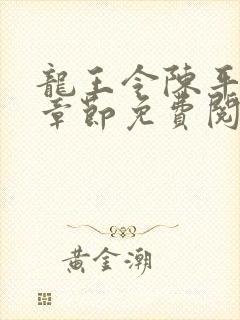 龍王令陳平
章節免費閱
黃金潮